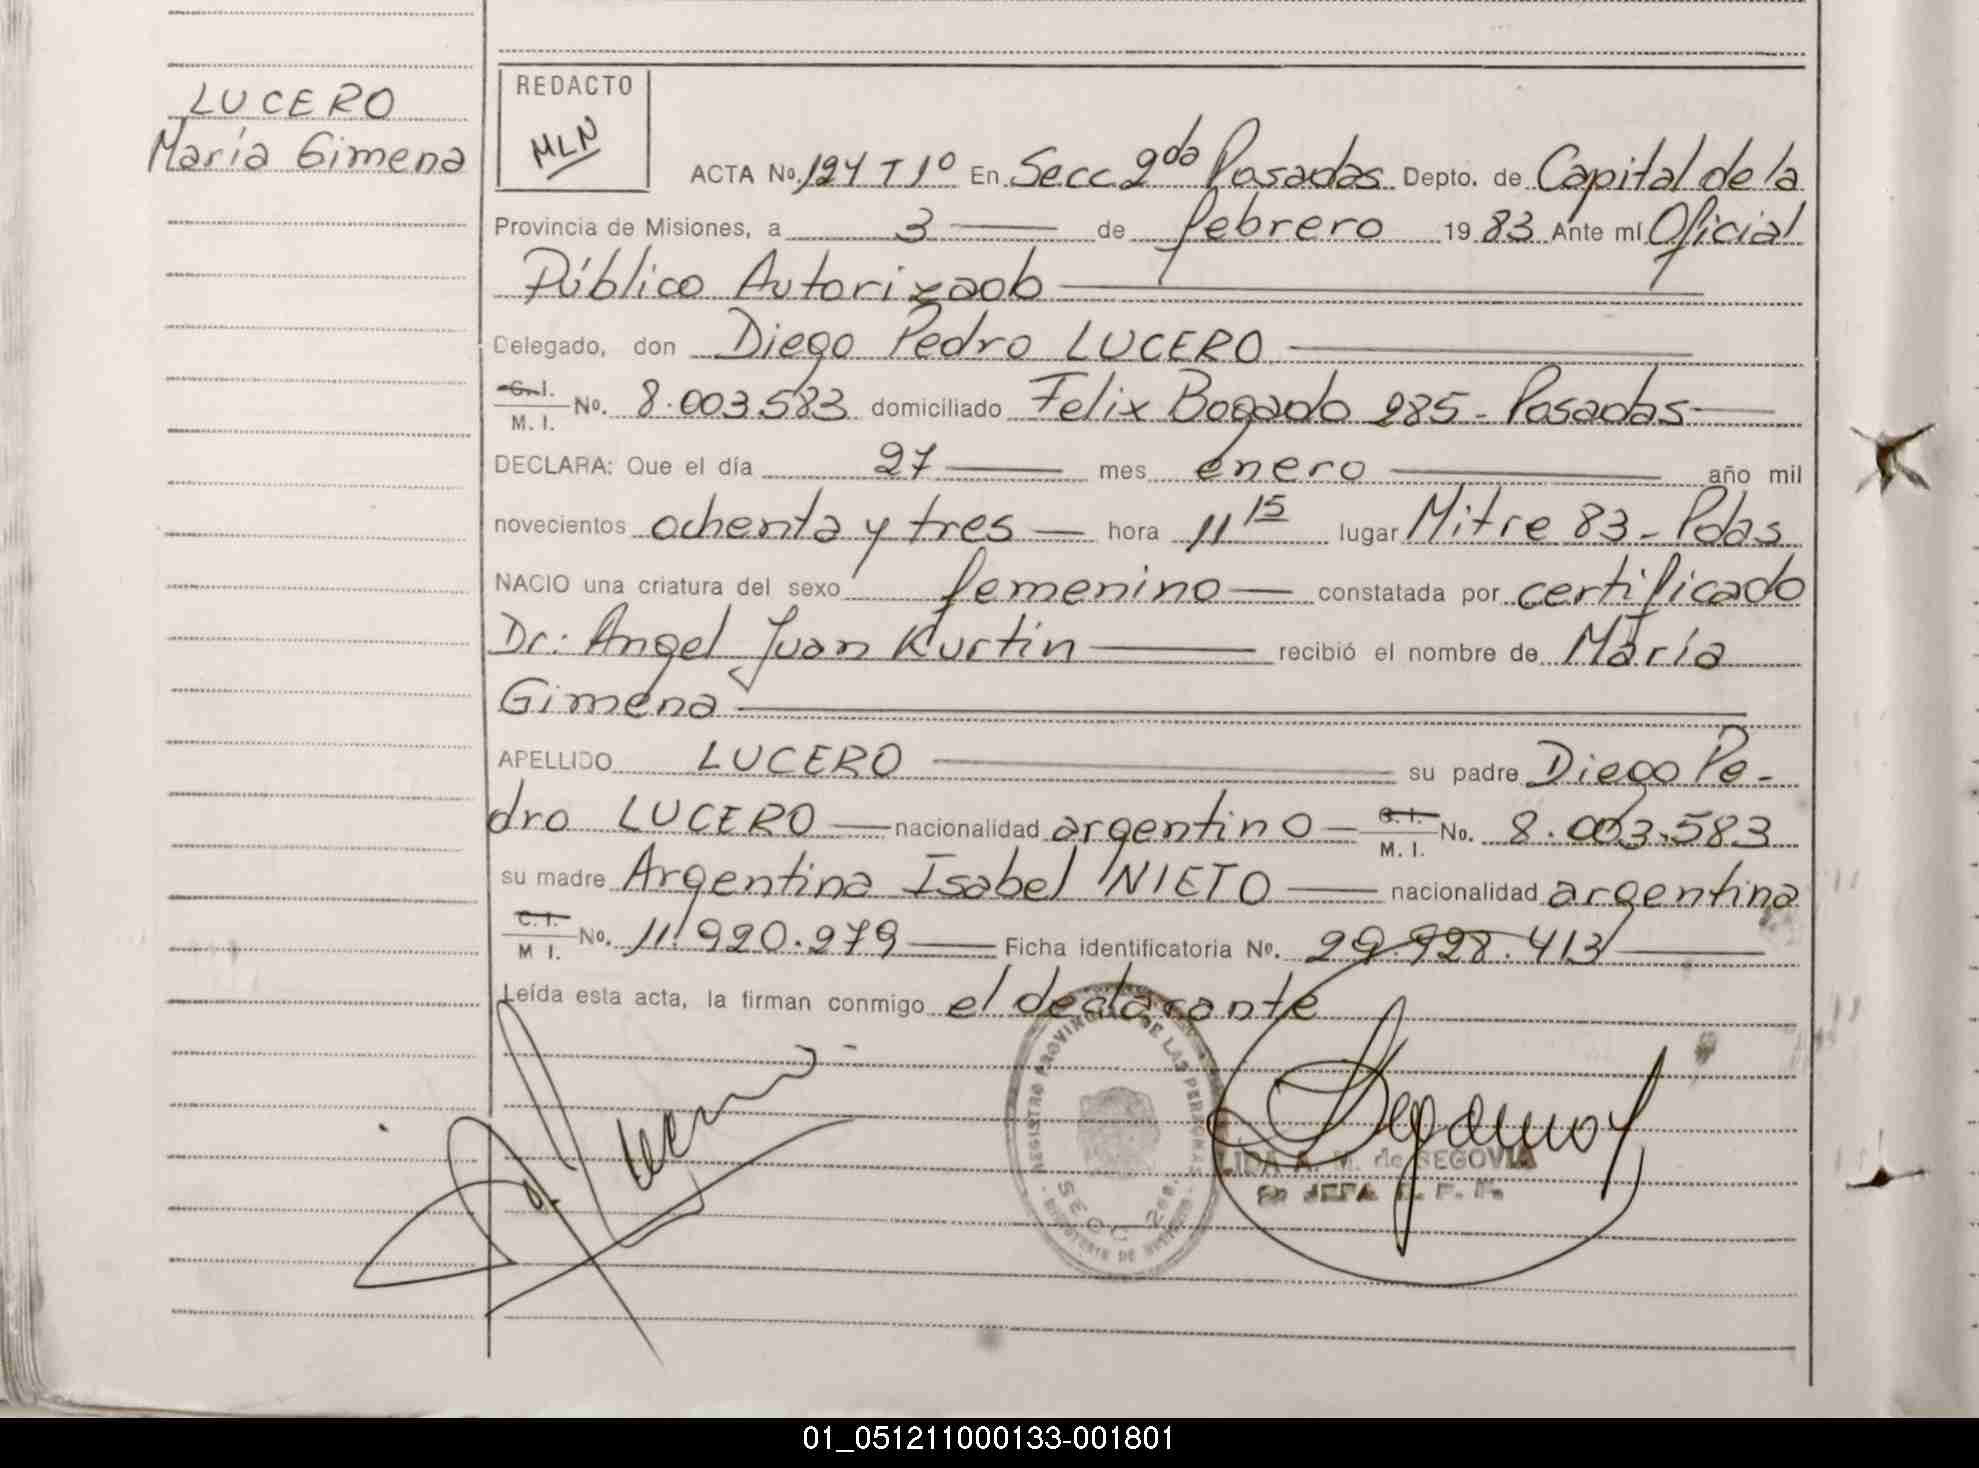 LUCERO
María Gimena
REDACTO
MLN
ACTA No. 124 T 1º En Secc 2da Posadas Depto. de Capital de la
Provincia de Misiones, a 3 de febrero 19 83 Ante mí Oficial
Público Autorizado
Delegado, don Diego Pedro LUCERO
C.I. M. I. No. 8.003.583 domiciliado Felix Bogado 285 - Posadas
DECLARA: Que el día 27 mes enero año mil
novecientos ochenta y tres hora 11 15 lugar Mitre 83 - Pdas
NACIO una criatura del sexo femenino constatada por certificado
Dr: Angel Juan Kurtin recibió el nombre de María
Gimena
APELLIDO LUCERO su padre Diego Pe-
dro LUCERO nacionalidad argentino C.I. M. I. No. 8.003.583
su madre Argentina Isabel NIETO nacionalidad argentina
C.I. M I. No. 11.920.279 Ficha identificatoria No. 29.928.413
Leída esta acta, la firman conmigo el declarante
REGISTRO PROVINCIAL DE LAS PERSONAS
SECC 2da
LIDA A. M. de SEGOVIA
JEFA
01_051211000133-001801